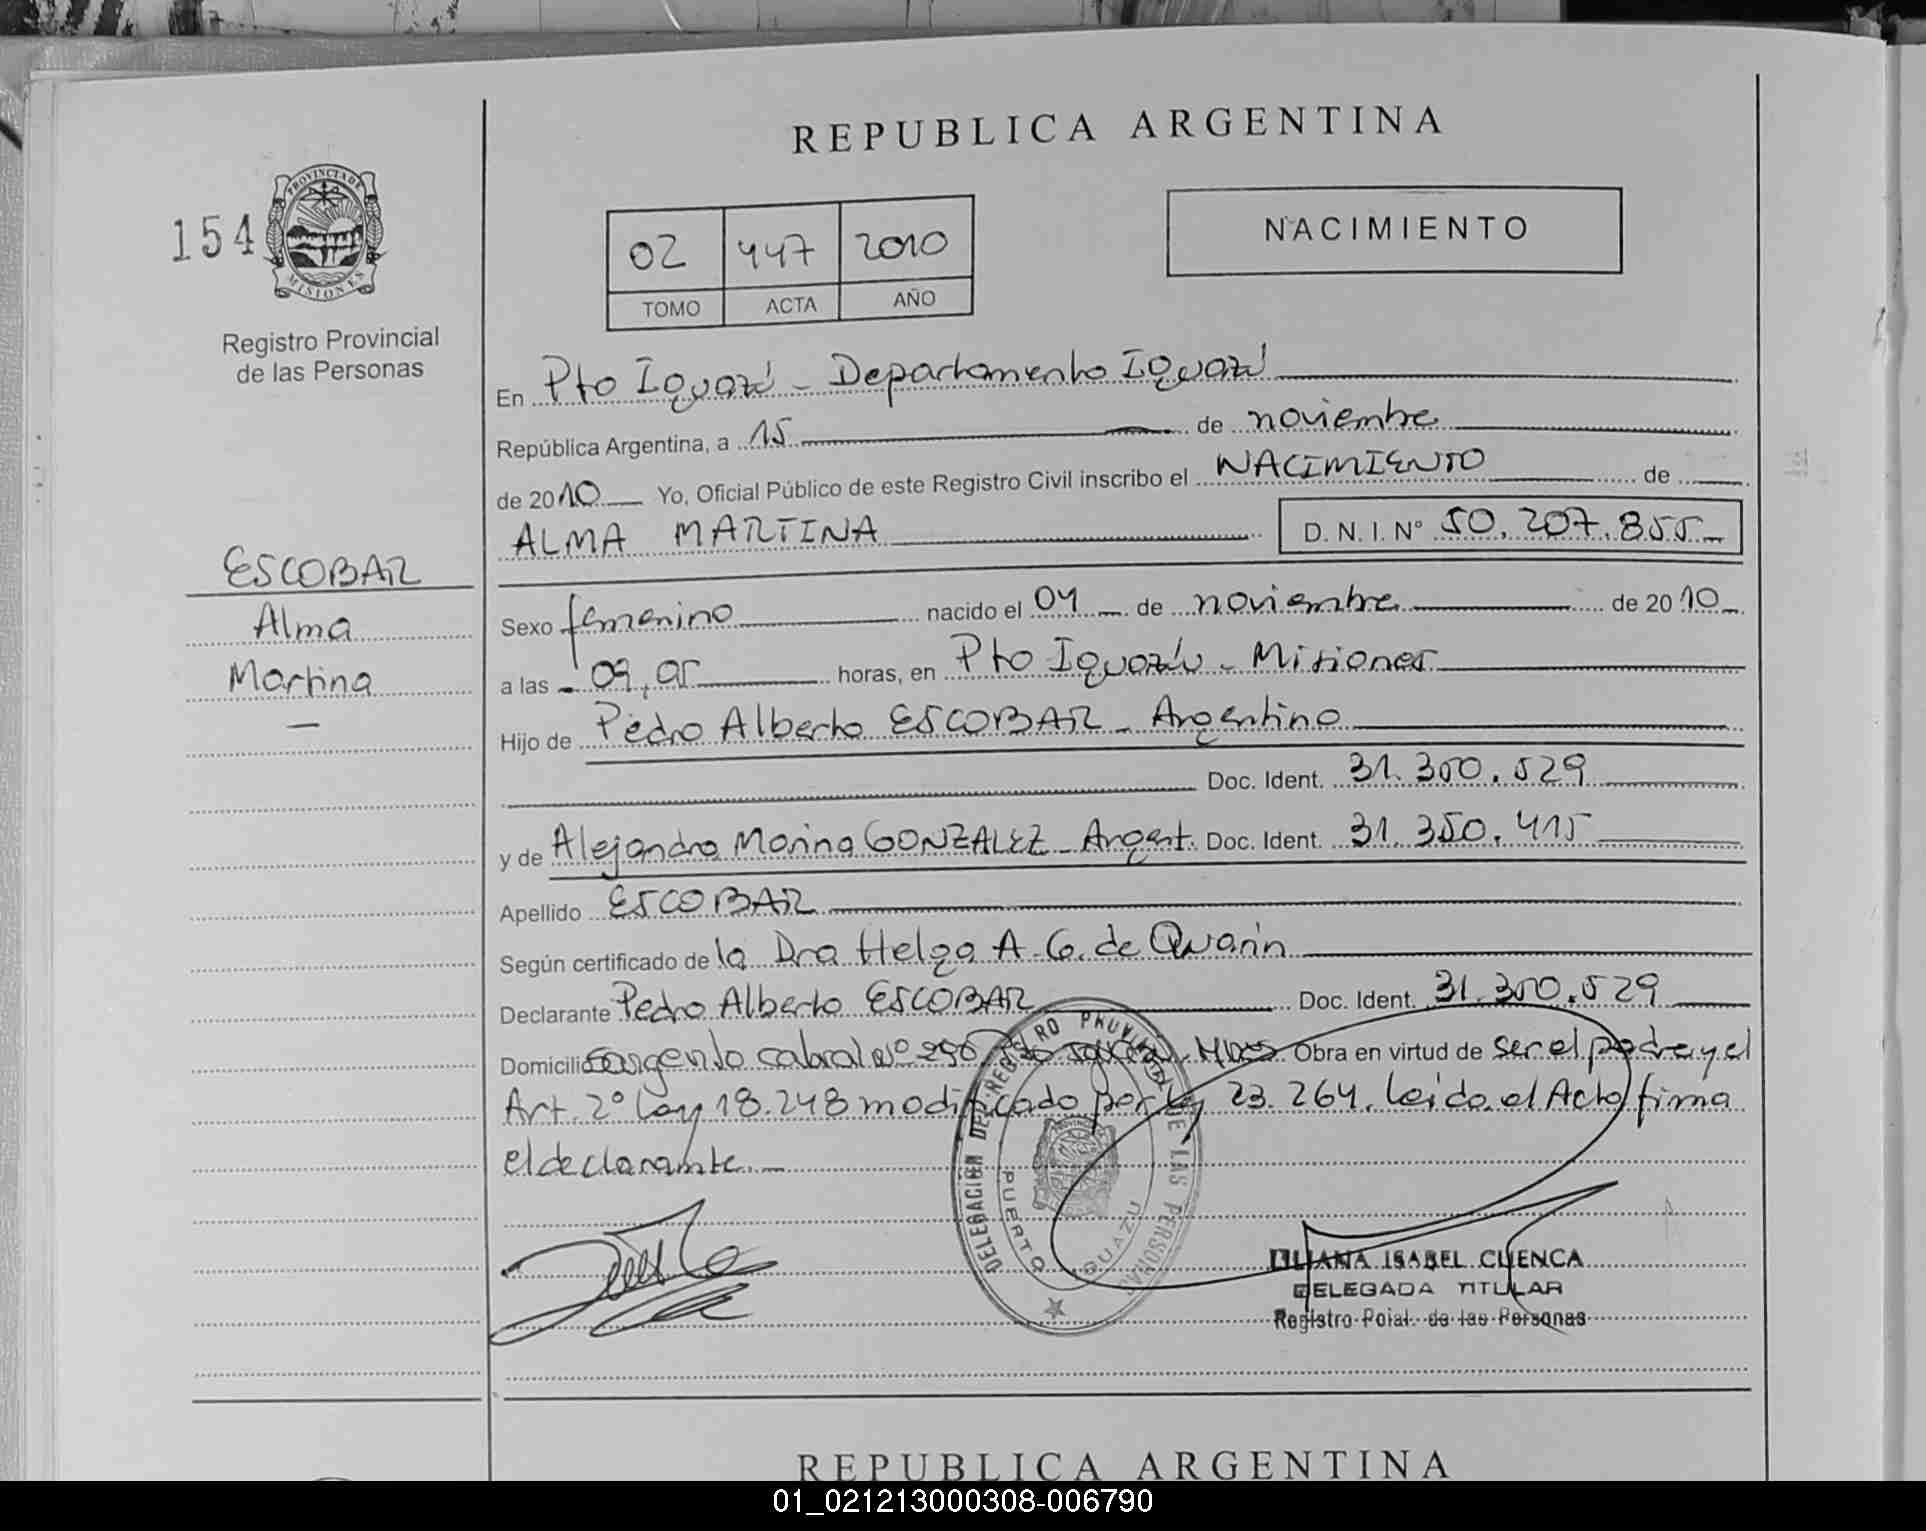 REPUBLICA ARGENTINA
154
PROVINCIA DE
MISIONES
Registro Provincial
de las Personas
02 447 2010
TOMO ACTA AÑO
NACIMIENTO
En Pto Iguazú - Departamento Iguazú
República Argentina, a 15 de noviembre
de 2010 Yo, Oficial Público de este Registro Civil inscribo el NACIMIENTO de
ALMA MARTINA D. N. I. N° 50.207.855
ESCOBAR
Alma
Martina
Sexo femenino nacido el 04 de noviembre de 2010
a las 09,05 horas, en Pto Iguazú - Misiones
Hijo de Pedro Alberto ESCOBAR - Argentino
Doc. Ident. 31.300.529
y de Alejandra Marina GONZALEZ - Argent. Doc. Ident. 31.350.415
Apellido ESCOBAR
Según certificado de la Dra Helga A. G. de Quarin
Declarante Pedro Alberto ESCOBAR Doc. Ident. 31.300.529
Domicilio Sargento Cabral N° 250 Mnes. Obra en virtud de ser el padre y el
Art. 2° Ley 18.248 modificado por Ley 23.264. Leida el Acta firma
el declarante.
DELEGACION DEL REGISTRO PROVINCIAL DE LAS PERSONAS
PUERTO IGUAZU
LILIANA ISABEL CUENCA
DELEGADA TITULAR
Registro Pcial. de las Personas
REPUBLICA ARGENTINA
01_021213000308-006790